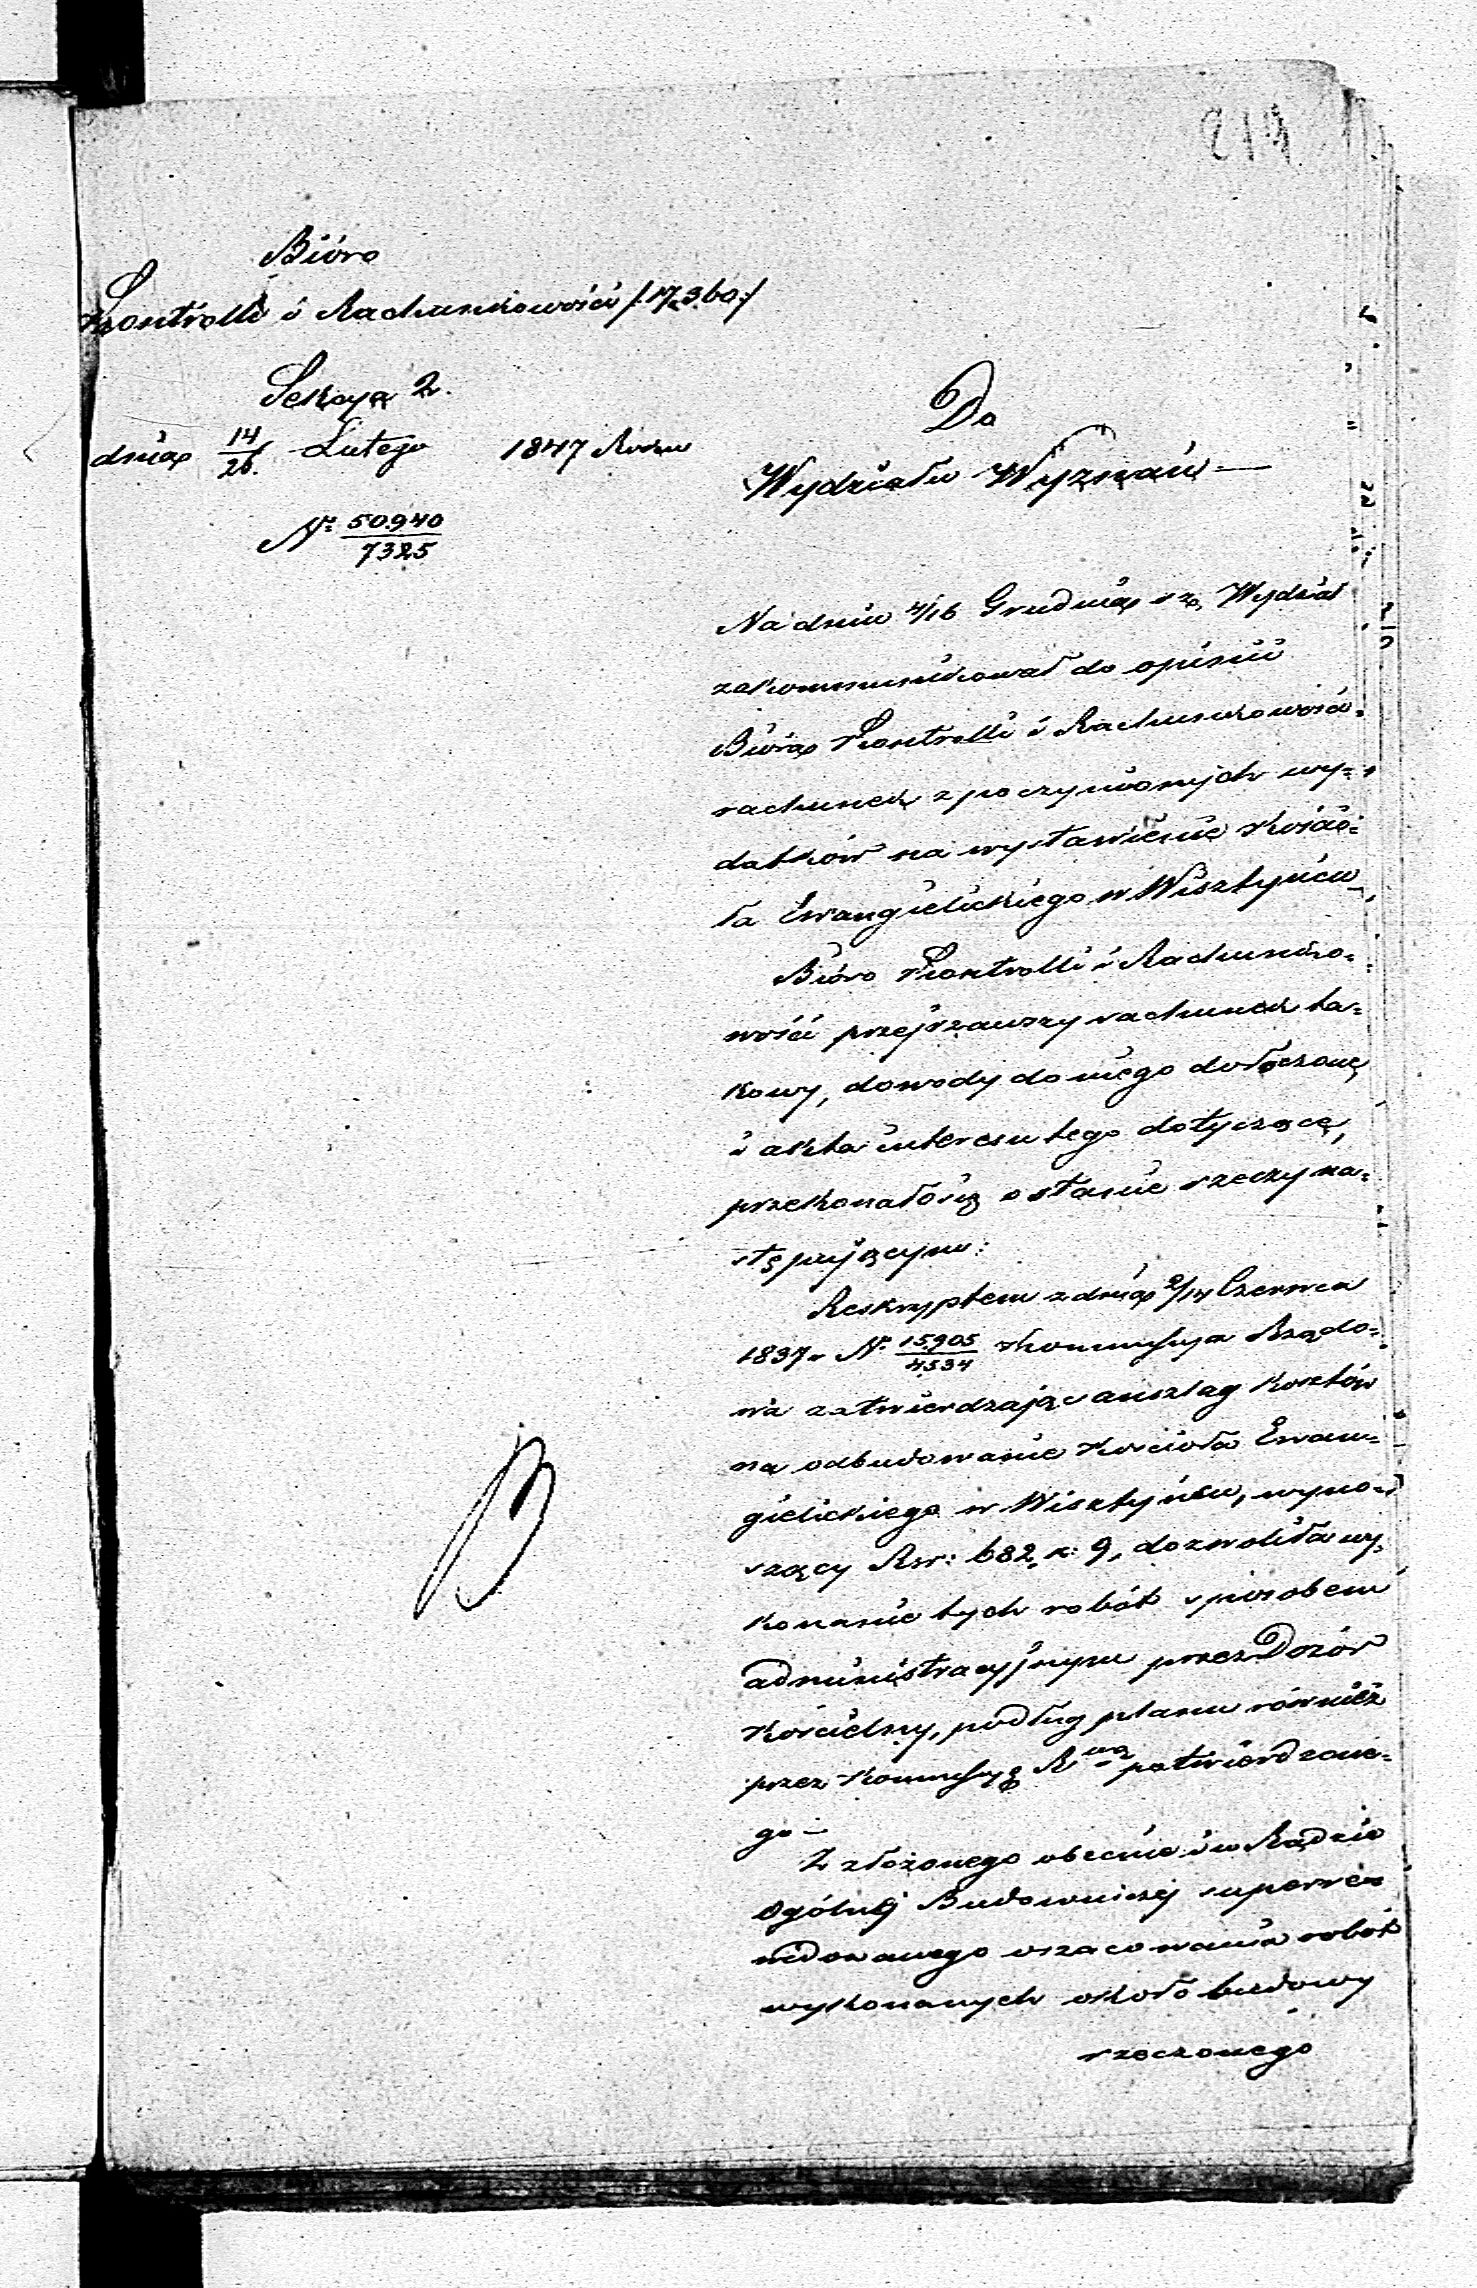 219
Bióro
Kontrolli i Rachunkowości /:17,360:/
Sekcya 2.
dnia 14/26 Lutego 1847 Roku
Nr 50.940/7325
Do
Wydziału Wyznań —
Na dniu 4/16 Grudnia r. z. Wydział
zakommunikował do opinii
Bióra Kontrolli i Rachunkowości
rachunek z poczynionych wy=
datków na wystawienie Kościo=
ła Ewangielickiego w Wisztyńcu
Bióro Kontrolli i Rachunko=
wości przejrzawszy rachunek ta=
kowy, dowody do niego dołączone,
i akta interesu tego dotyczące,
przekonało się o stanie rzeczy na=
stępującym:
Reskryptem z dnia 2/14 Czerwca
1837 r. Nr 15905/4534 Kommissya Rządo=
wa zatwierdzając anszlag kosztów
na odbudowanie Kościoła Ewan=
gielickiego w Wisztyńcu, wyno=
szący Rsr: 682, k: 9, dozwoliła wy=
konanie tych robót sposobem
administracyjnym przez Dozór
Kościelny, podług planu również
przez Kommissyę R wą potwierdzone=
go —
Z złożonego obecnie i w Radzie
Ogólnej Budowniczej superrewi=
dowanego oszacowania robót
wykonanych około budowy
rzeczonego